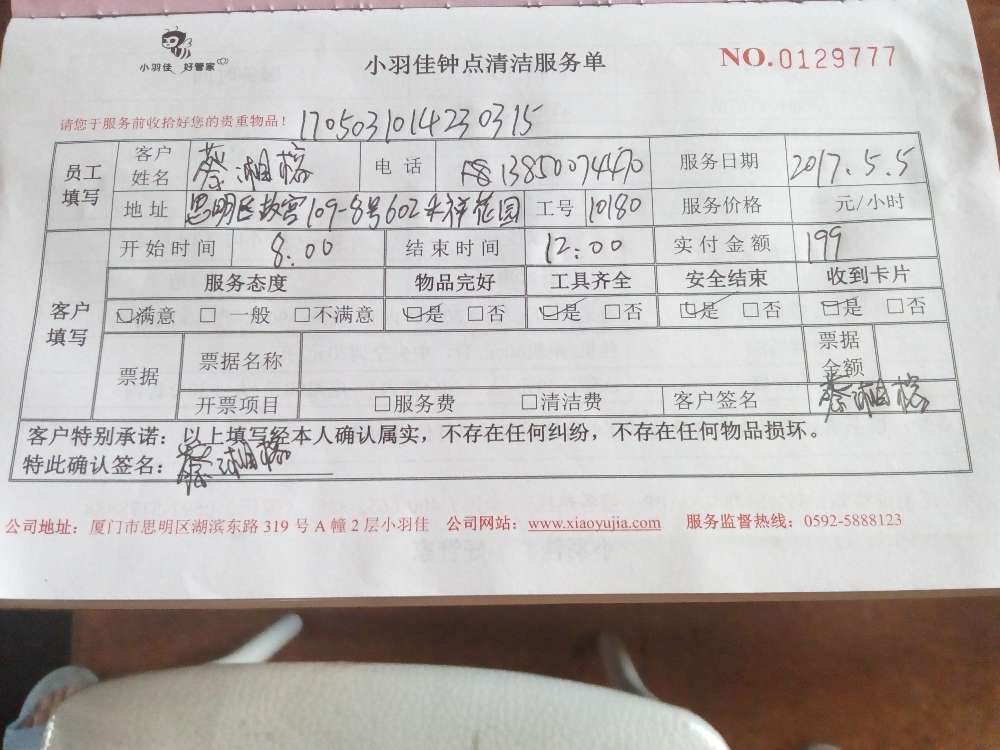 小羽佳 好管家
小羽佳钟点清洁服务单
NO.0129777
请您于服务前收拾好您的贵重物品！ 1705031014230315
员工填写 客户姓名 蔡湘榕 电话 13850074470 服务日期 2017.5.5
地址 思明区故宫109-8号602 祥花园 工号 10180 服务价格 元/小时
客户填写 开始时间 8:00 结束时间 12:00 实付金额 199
服务态度 物品完好 工具齐全 安全结束 收到卡片
☑满意 □一般 □不满意 ☑是 □否 ☑是 □否 ☑是 □否 ☑是 □否
票据 票据名称 票据金额
开票项目 □服务费 □清洁费 客户签名 蔡湘榕
客户特别承诺：以上填写经本人确认属实，不存在任何纠纷，不存在任何物品损坏。
特此确认签名：蔡湘榕
公司地址：厦门市思明区湖滨东路 319 号 A 幢 2 层小羽佳 公司网站：www.xiaoyujia.com 服务监督热线：0592-5888123